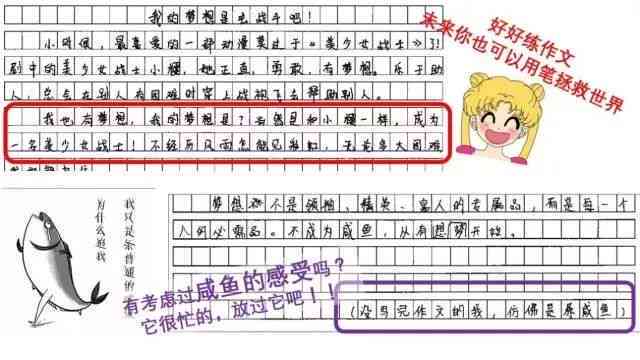 我的梦想是去战斗吧！
小时候，最喜爱的一部动漫莫过于《美少女战士》了！
剧中的美少女战士小兔，她正直，勇敢，有梦想。乐于助
人，总会在别人有困难时穿上战袍飞去帮助别人。
我也有梦想，我的梦想是？当然是和小兔一样，成为
一名美少女战士！不经历风雨怎能见彩虹，无论多大困难
好好练作文
未来你也可以用笔拯救世界
我只是条普通的
为什么追我
梦想 不是领袖、精英、富人的专属品，而是每一个
人的必需品。不成为咸鱼，从有想梦开始。
有考虑过咸鱼的感受吗？
它很忙的，放过它吧！！
（没写完作文的我，仿佛是条咸鱼）